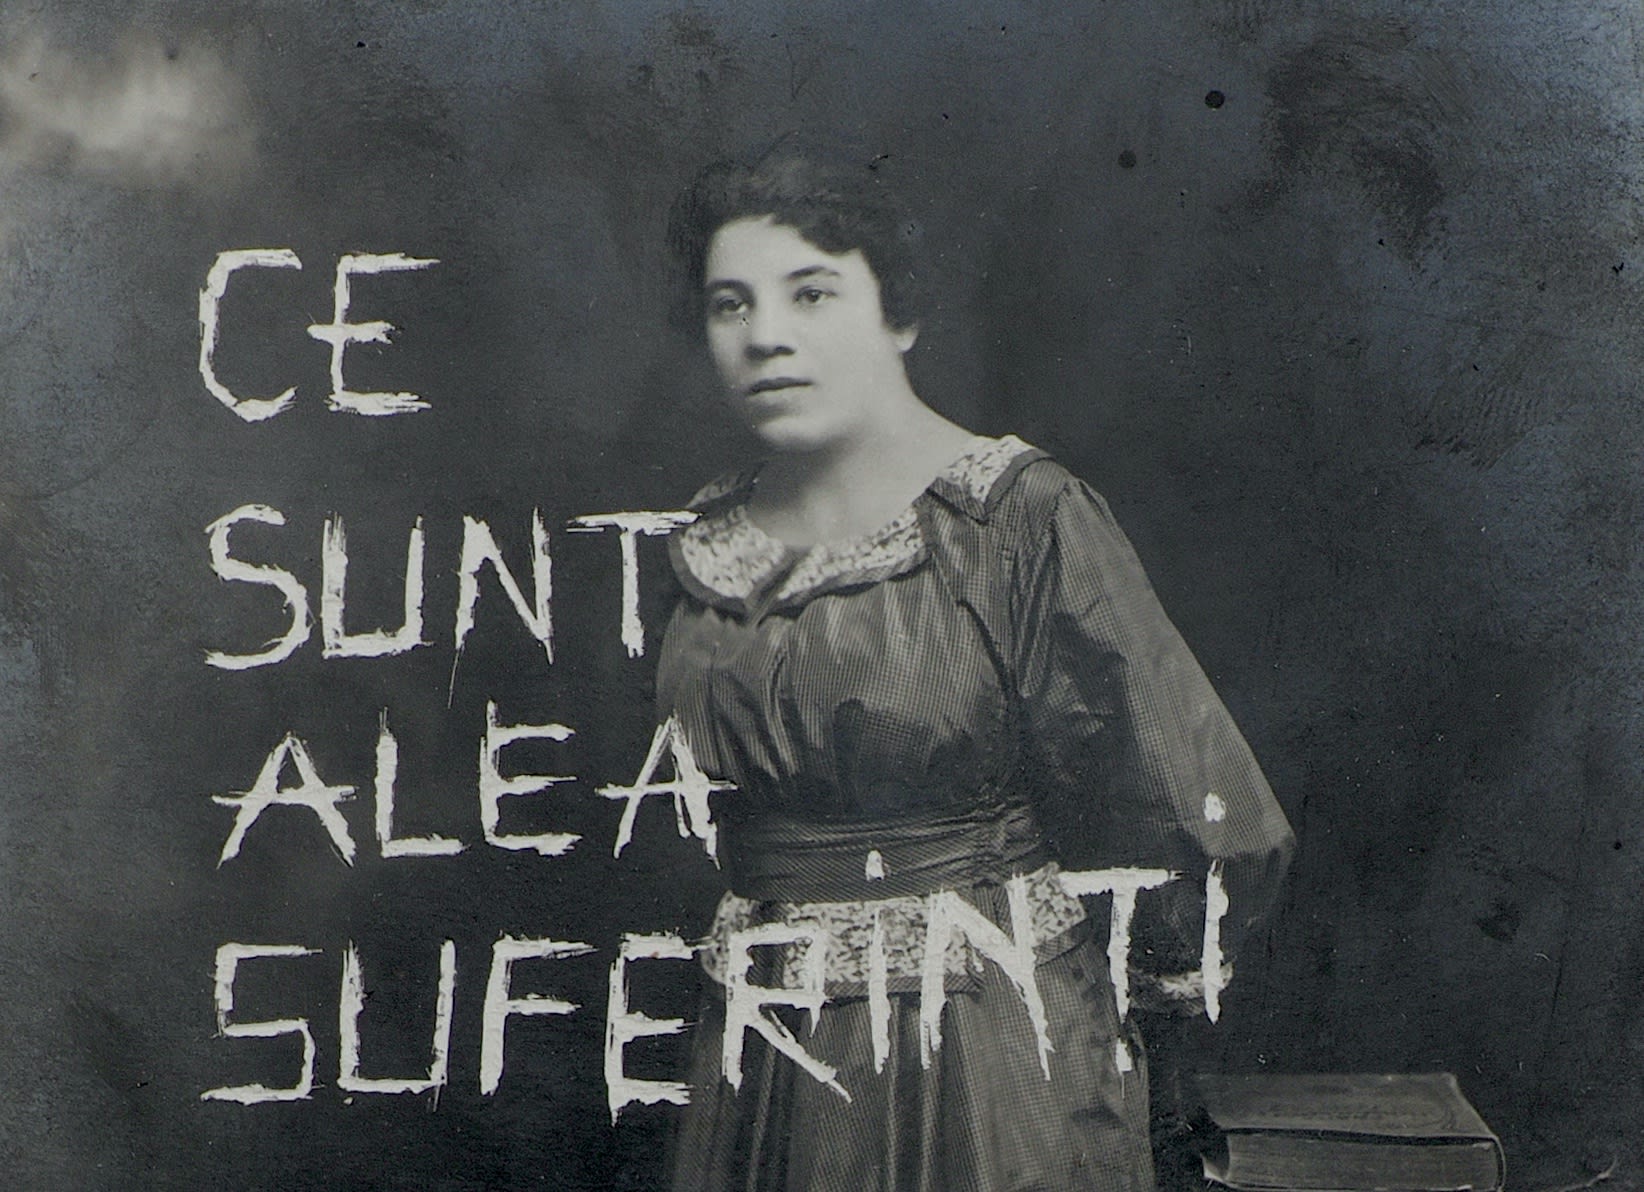 CE
SUNT
ALEA
SUFERINȚI